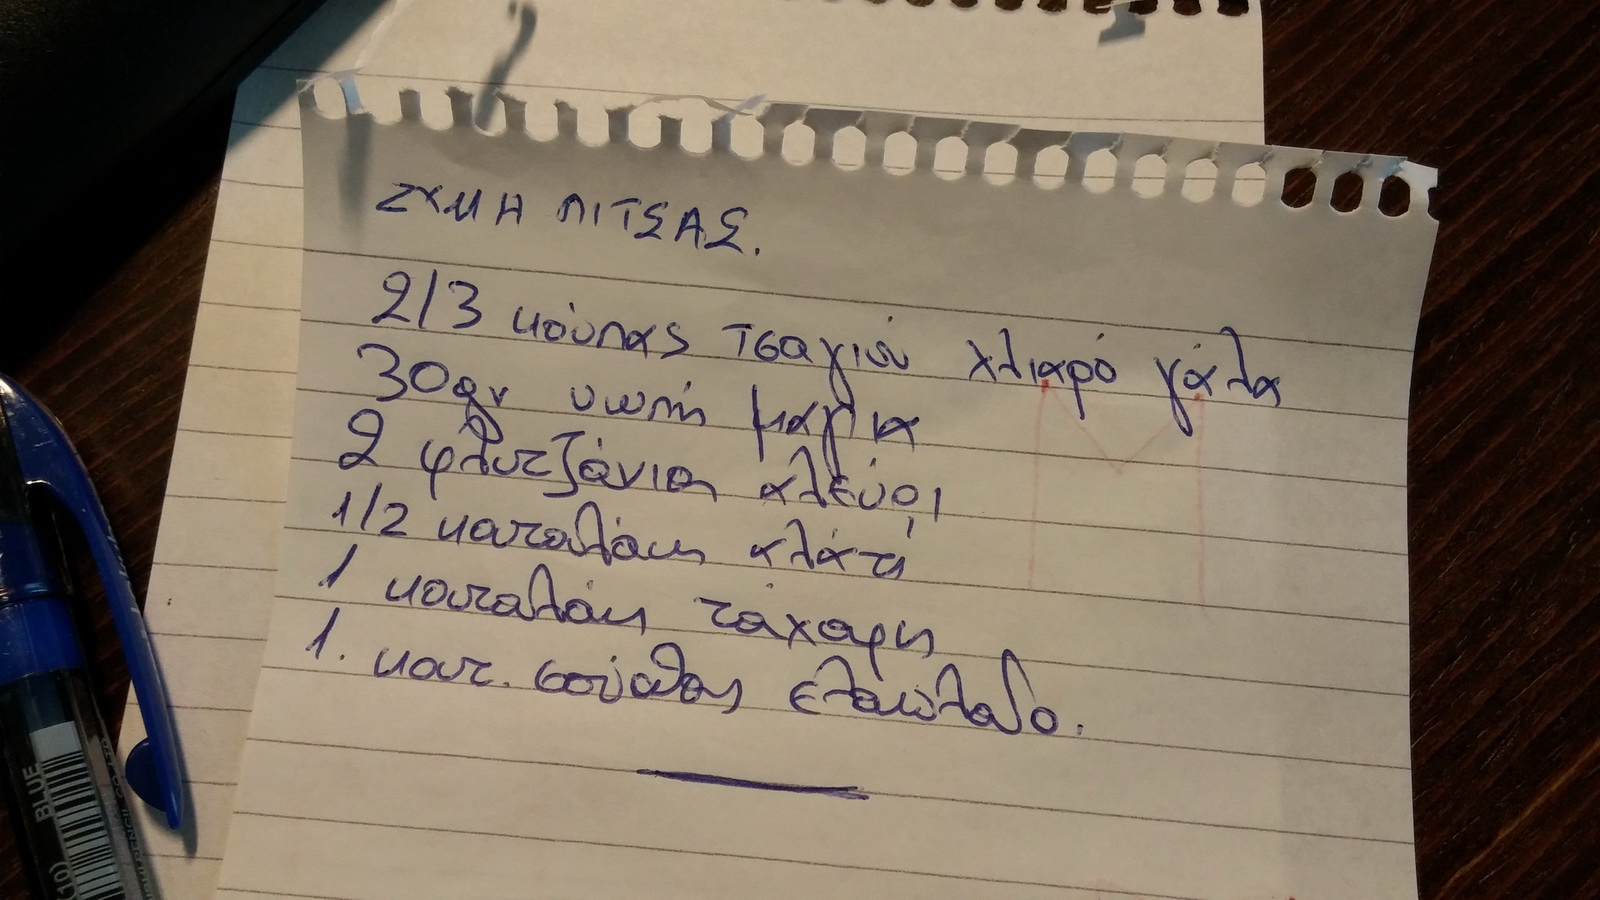 ΖΥΜΗ ΠΙΤΣΑΣ.
2/3 κούπας τσαγιού χλιαρό γάλα
30γρ νωπή μαγιά
2 φλυτζάνια αλεύρι
1/2 κουταλάκι αλάτι
1 κουταλάκι ζάχαρη
1. κουτ. σούπας ελαιόλαδο.
BLUE